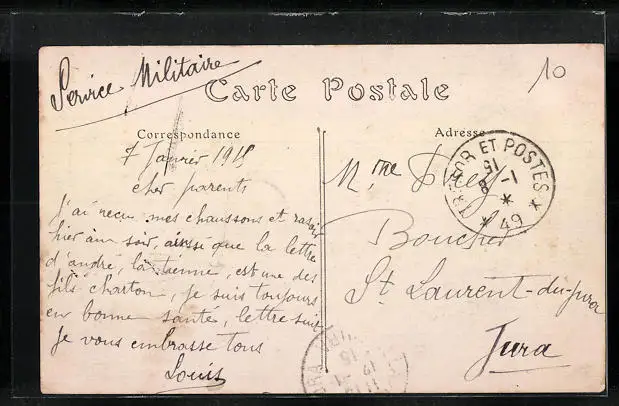 Service Militaire
10
Carte Postale
Correspondance
Adresse
7 Janvier 1915
cher parents
J'ai reçu mes chaussons et rasoir
hier au soir, ainsi que la lettre
d'andré, la tienne, est une des
fils charton, je suis toujours
en bonne santé, lettre suit
Je vous embrasse tous
Louis
Mme
Boucher
St Laurent-du-Jura
Jura
TRESOR ET POSTES
8 -1 15
* 49 *